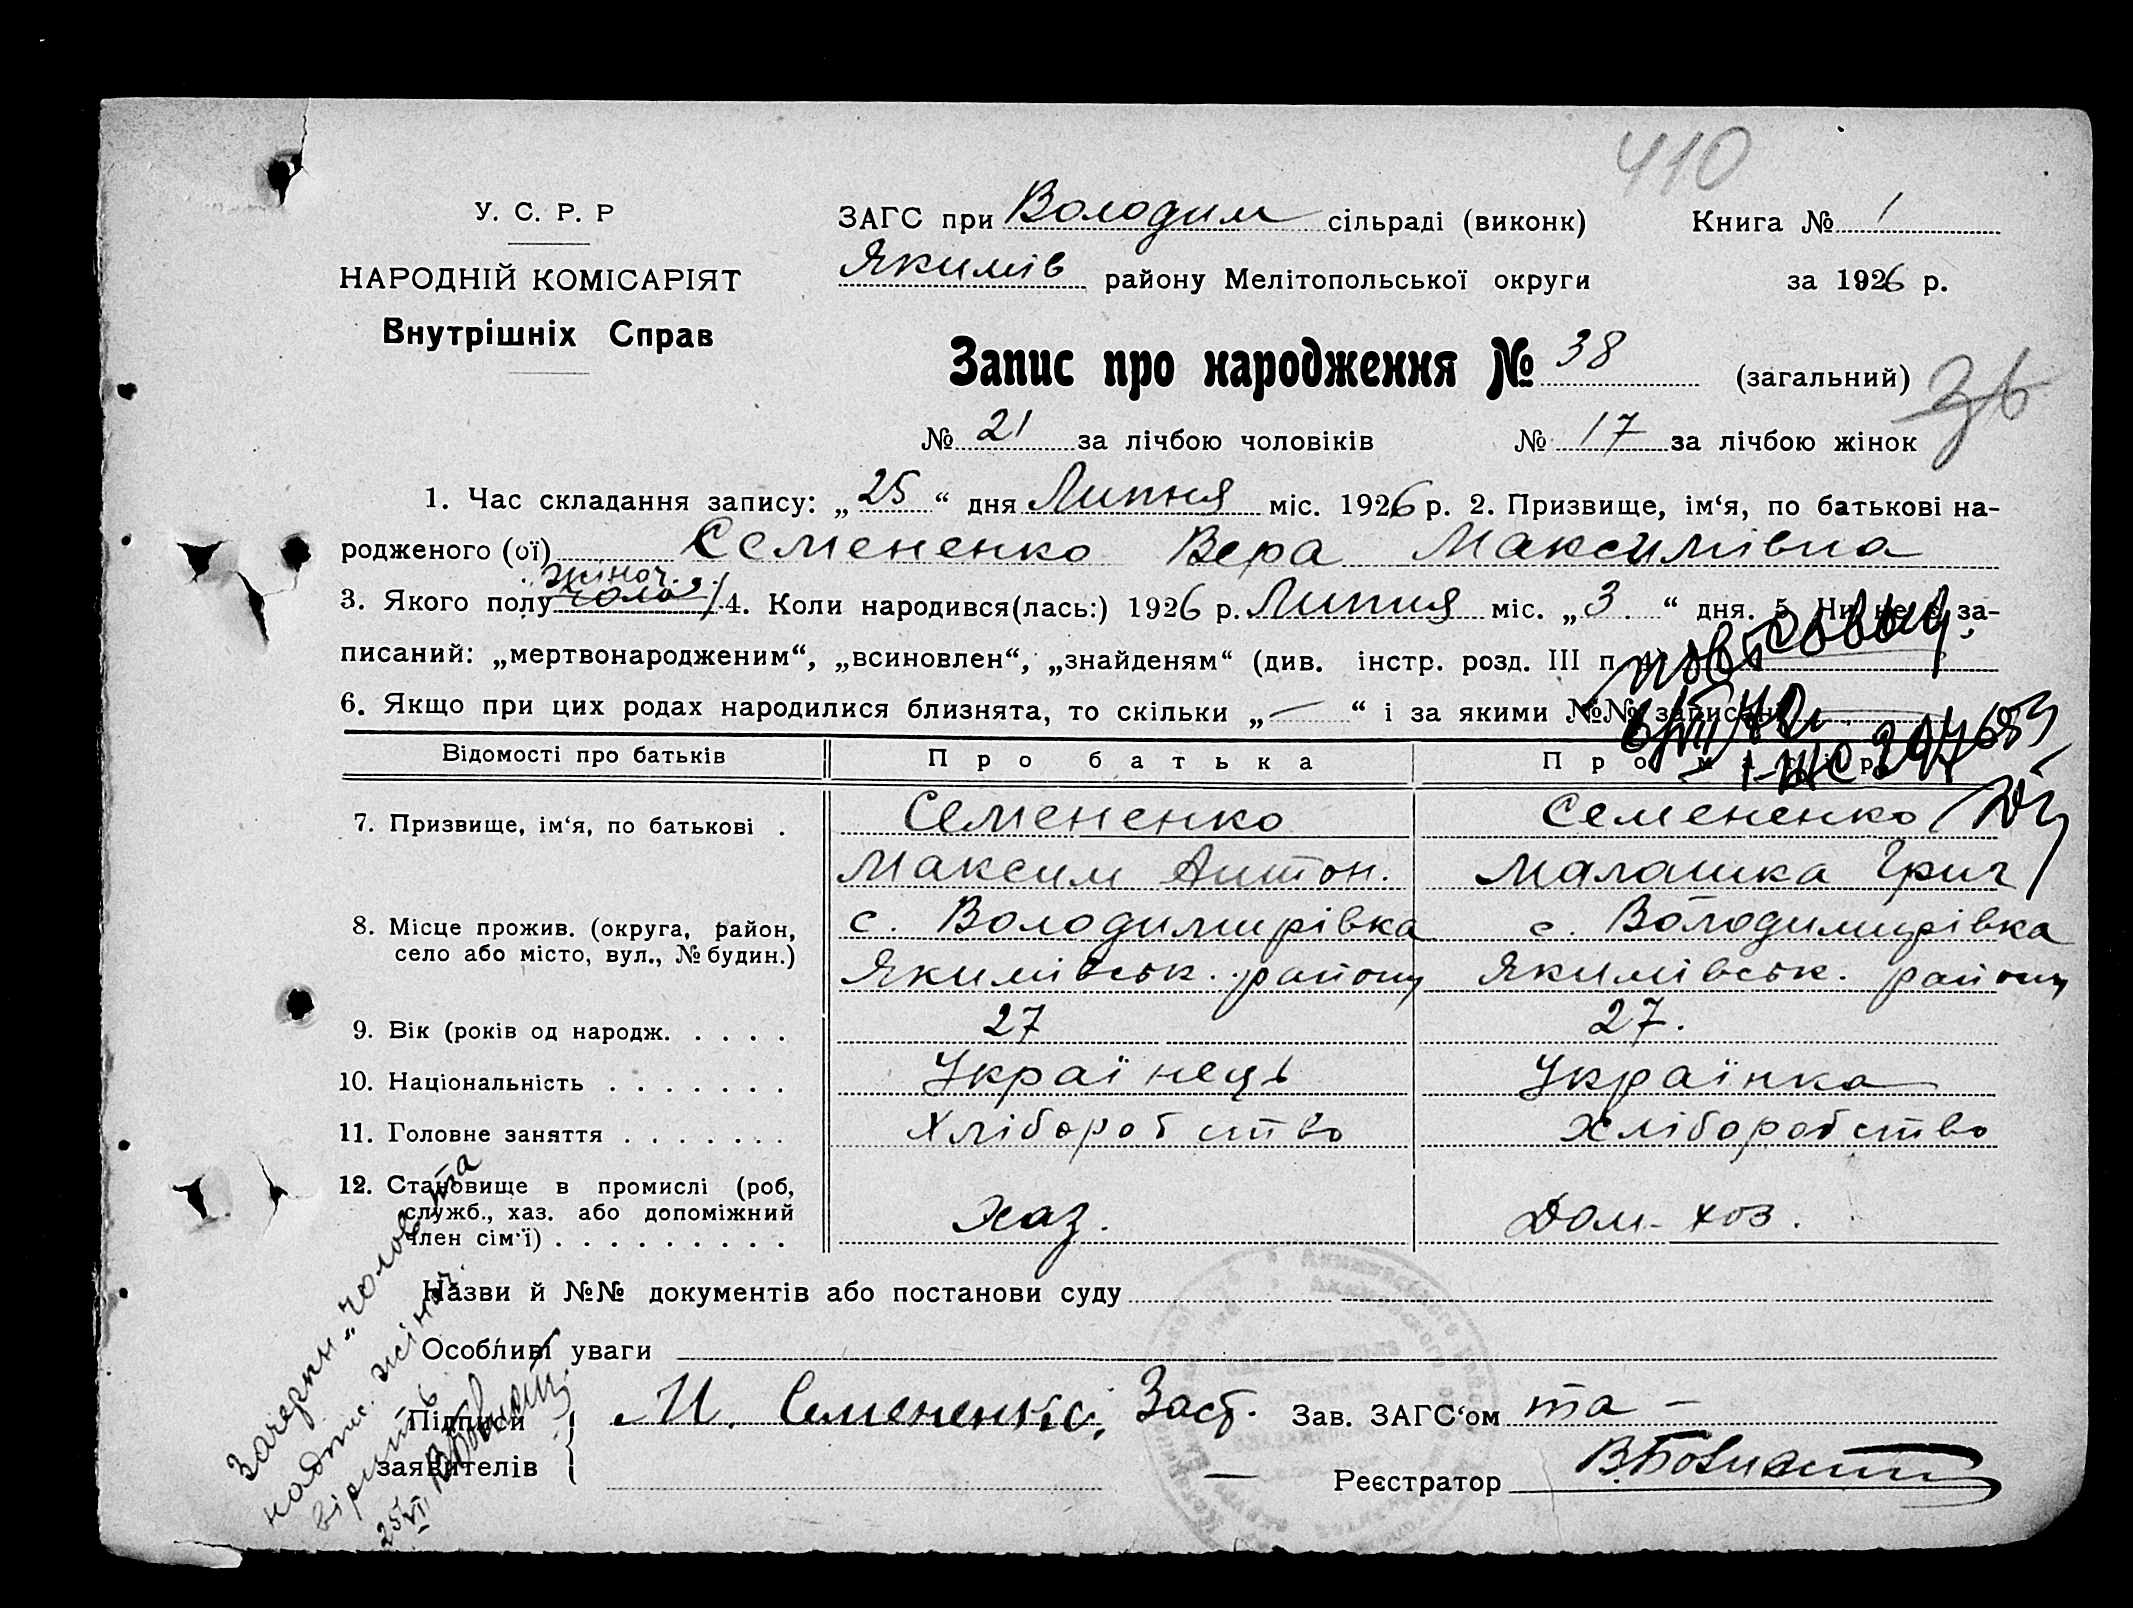 410
У. С. Р. Р
НАРОДНІЙ КОМІСАРІЯТ
Внутрішніх Справ
ЗАГС при Володим сільраді (виконк) Книга № 1
Якимів району Мелітопольської округи за 1926 р.
Запис про народження № 38 (загальний)
№ 21 за лічбою чоловіків № 17 за лічбою жінок
1. Час складання запису: „25“ дня Липня міс. 1926 р. 2. Призвище, ім‘я, по батькові на-
родженого (ої) Семененко Вера Максимівна
„жіноч.
3. Якого полу чолов 4. Коли народився(лась:) 1926 р. Липня міс. „3“ дня. 5. Чи не є за-
писаний: „мертвонародженим“, „всиновлен“, „знайденям“ (див. інстр. розд. III п.
6. Якщо при цих родах народилися близнята, то скільки „—“ і за якими №№ записані
Відомості про батьків Про батька Про матір
7. Призвище, ім‘я, по батькові . Семененко Семененко
Максим Антон. Малашка Григ
8. Місце прожив. (округа, район, с. Володимирівка с. Володимирівка
село або місто, вул., № будин.) Якимівськ. району Якимівськ. району
9. Вік (років од народж. . . . . 27 27.
10. Національність . . . . . . . Українець Українка
11. Головне заняття . . . . . . . Хліборобство Хліборобство
12. Становище в промислі (роб,
служб., хаз. або допоміжний Хаз. Дом. хоз.
член сім‘ї) . . . . . . . . .
Назви й №№ документів або постанови суду
Особливі уваги
Підписи М. Семененко, Заст. Зав. ЗАГС‘ом та —
заявителів — Реєстратор
Зачеркн. „чолов“ та
надпис. жіноч.
вірить
25/VII